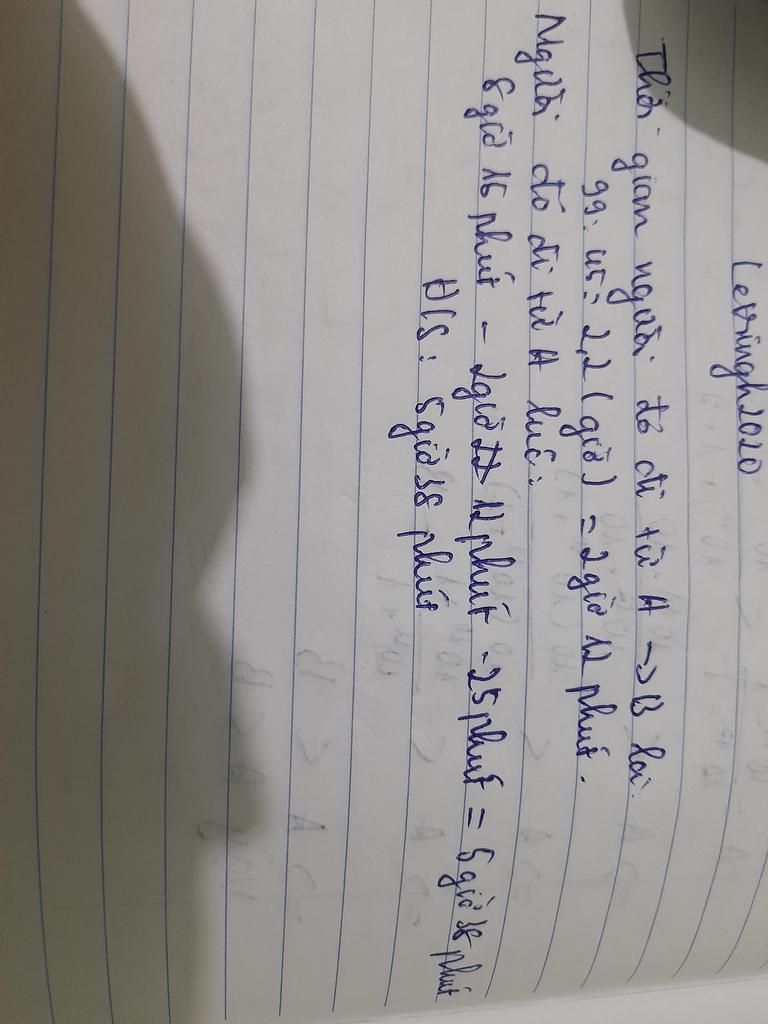 Levingh2020
Thời gian người đó đi từ A -> B là:
99 : 45 = 2,2 (giờ) = 2 giờ 12 phút.
Người đó đi từ A lúc:
8 giờ 15 phút - 2 giờ 12 phút - 25 phút = 5 giờ 38 phút
Đ/S: 5 giờ 38 phút